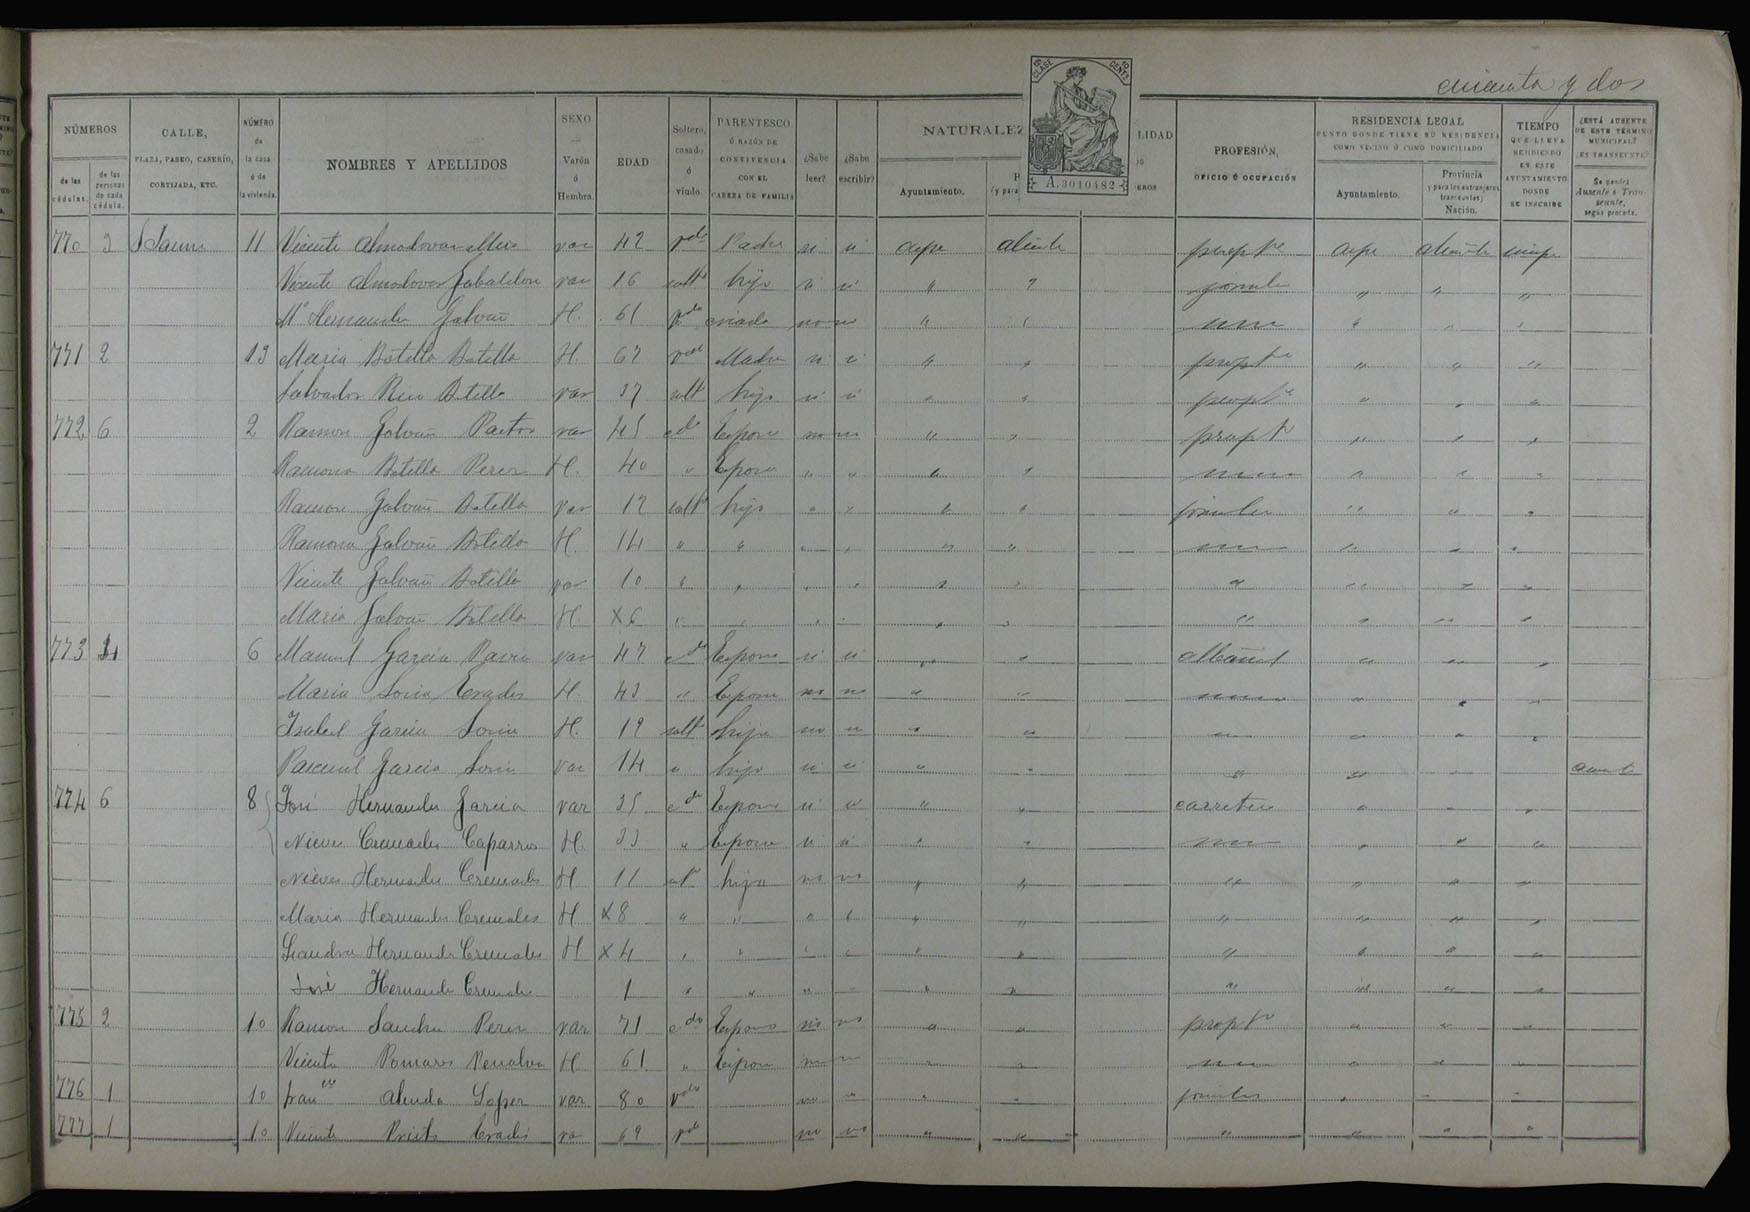 cincuenta y dos
12ª CLASE 10 CENTS
A.3010482
NÚMEROS
de las cédulas.
de las personas de cada cédula.
CALLE,
PLAZA, PASEO, CASERÍO,
CORTIJADA, ETC.
NÚMERO de la casa ó de la vivienda.
NOMBRES Y APELLIDOS
SEXO — Varón ó Hembra.
EDAD
Soltero, casado ó viudo.
PARENTESCO Ó RAZÓN DE CONVIVENCIA CON EL CABEZA DE FAMILIA
¿Sabe leer?
¿Sabe escribir?
NATURALEZ
LIDAD
Ayuntamiento.
(y para
EROS
PROFESIÓN,
OFICIO Ó OCUPACIÓN
RESIDENCIA LEGAL
PUNTO DONDE TIENE SU RESIDENCIA
COMO VECINO Ó COMO DOMICILIADO
Ayuntamiento.
Provincia (y para los extranjeros transeuntes) Nación.
TIEMPO QUE LLEVA RESIDIENDO EN ESTE AYUNTAMIENTO DONDE SE INSCRIBE
¿ESTÁ AUSENTE DE ESTE TÉRMINO MUNICIPAL? ¿ES TRANSEUNTE?
Se pondrá Ausente ó Transeunte, según proceda.
770 3 S Jaime 11 Vicente Almodovar var 42 vdo Padre si si aspe alicte propte aspe siempe
Vicente Almodovar Gabaldon var 16 solt hijo si si " " " " "
Mª Hernandez Galvañ H. 61 vda criada no no " " " " "
771 2 13 Maria Botella Botella H. 67 vda Madre si si " " propte " " "
Salvador Rico Botella var 37 solt hijo si si " " propte " " "
772 6 2 Ramon Galvañ Pastor var 45 cdo Esposo no no " " propte " " "
Ramona Botella Perez H. 40 " Esposa " " " " " " "
Ramon Galvañ Botella var 12 solt hijo " " " " " " "
Ramona Galvañ Botella H. 14 " " " " " " " " "
Vicente Galvañ Botella var 10 " " " " " " " " " "
Maria Galvañ Botella H. X6 " " " " " " " " " "
773 4 6 Manuel Garcia Pavia var 47 cdo Esposo si si " " Albañil " " "
Maria Soria Erades H. 43 " Esposa no no " " " " "
Isabel Garcia Soria H. 19 solt hija no no " " " " " "
Pascual Garcia Soria var 14 " hijo si si " " " " " "
774 6 8 José Hernandez Garcia var 35 cdo Esposo si si " " carretero " " "
Nieves Cremades Caparros H. 33 " Esposa si si " " " " "
Nieves Hernandez Cremades H 11 solt hija no no " " " " " "
Maria Hernandez Cremades H X8 " " " " " " " " " "
Leandra Hernandez Cremades H X4 " " " " " " " " " "
José Hernandez Cremades 1 " " " " " " " " "
775 2 10 Ramon Sanchez Perez var 71 cdo Esposo no no " " propte " " "
Vicenta Pomares Penalva H 61 " Esposa no no " " " " "
776 1 10 Franco Lopez var 80 vdo no " " " " " "
777 1 10 Vicente Prieto Erades va 69 vdo no no " " " " " "